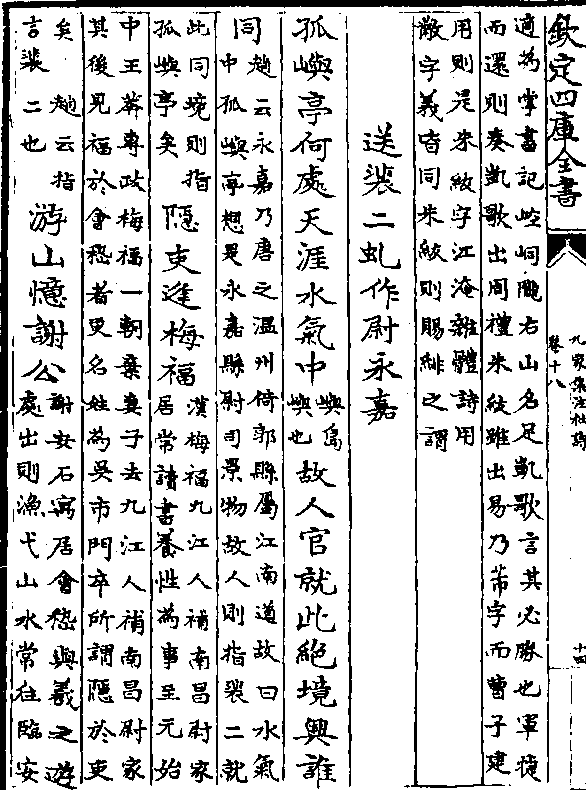 欽定四庫全書
九家集注杜詩
卷十八
十四
適為掌書記崆峒隴右山名足凱歌言其必勝也軍捷
而還則奏凱歌出周禮朱紱雖出易乃芾字而曹子建
用則是朱紱字江淹雜體詩用
黻字義皆同朱紱則賜緋之謂
送裴二虬作尉永嘉
孤嶼亭何處天涯水氣中
嶼島
嶼也
故人官就此絕境興誰
同
趙云永嘉乃唐之温州倚郭縣屬江南道故曰水氣
中孤嶼亭想是永嘉縣尉司景物故人則指裴二就
此同境則指
孤嶼亭矣
隱吏逢梅福
漢梅福九江人補南昌尉家
居常讀書養性為事至元始
中王莽專政梅福一朝棄妻子去九江人補南昌尉家
其後見福於會稽者更名姓為吳市門卒所謂隱於吏
矣 趙云指
言裴二也
游山憶謝公
謝安石寓居會稽與羲之遊
處出則漁弋山水常往臨安